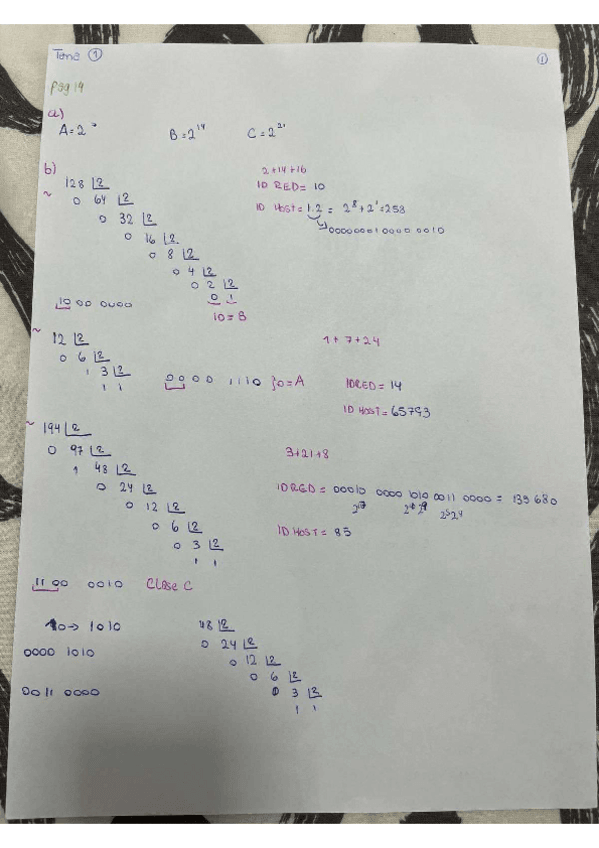 Tema 1
1
pag 14
a)
A = 2⁷ B = 2¹⁴ C = 2²¹
b)
2+14+16
128 |2
ID RED = 10
~ 0 64 |2
ID HOST = 1.2 = 2⁸ + 2¹ = 258
0 32 |2
00000001 0000 0010
0 16 |2
0 8 |2
0 4 |2
0 2 |2
0 1
10 = B
10 00 0000
~ 12 |2
1 + 7 + 24
0 6 |2
1 3 |2
1 1
0000 1110 } 0 = A
IDRED = 14
ID HOST = 65793
~ 194 |2
0 97 |2
3+21+8
1 48 |2
0 24 |2
IDRED = 00010 0000 1010 0011 0000 = 139 680
0 12 |2
2¹⁷ 2⁹ 2⁵ 2⁴
0 6 |2
ID HOST = 85
0 3 |2
1 1
11 00 0010 Clase C
10 → 1010
48 |2
0 24 |2
0000 1010
0 12 |2
0 6 |2
0011 0000
0 3 |2
1 1